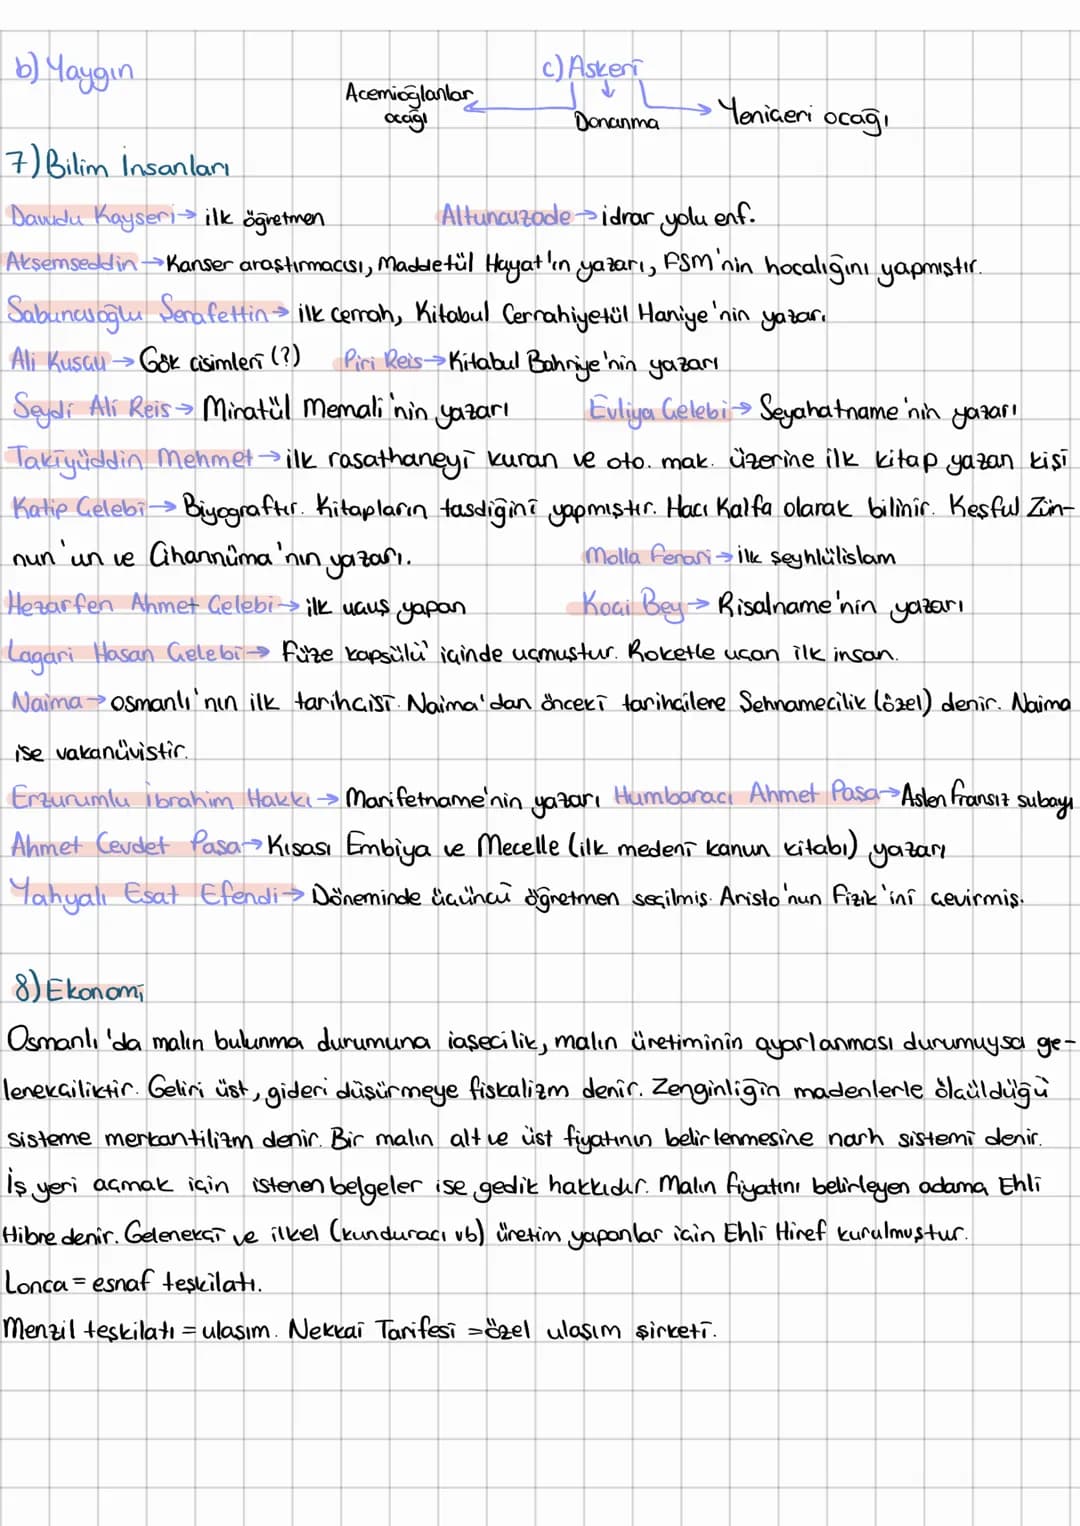 b) Yaygın
c) Askeri
Acemioğlanlar ocağı
Donanma
Yeniçeri ocağı
7) Bilim İnsanları
Davudu Kayseri → ilk öğretmen
Altuncuzade → idrar yolu enf.
Akşemseddin → Kanser araştırmacısı, Maddetül Hayat'ın yazarı, FSM'nin hocalığını yapmıştır.
Sabuncuoğlu Şerafettin → ilk cerrah, Kitabul Cerrahiyetül Haniye'nin yazarı
Ali Kuşçu → Gök cisimleri (?)
Piri Reis → Kitabul Bahriye'nin yazarı
Seydi Ali Reis → Miratül Memali'nin yazarı
Evliya Çelebi → Seyahatname'nin yazarı
Takiyüddin Mehmet → ilk rasathaneyi kuran ve oto. mak. üzerine ilk kitap yazan kişi
Katip Çelebi → Biyograftır. Kitapların tasdiğini yapmıştır. Hacı Kalfa olarak bilinir. Keşful Zün-
nun'un ve Cihannüma'nın yazarı.
Molla Fenari → ilk şeyhlülislam
Hezarfen Ahmet Çelebi → ilk uçuş yapan
Koçi Bey → Risalname'nin yazarı
Lagari Hasan Çelebi → Füze kapsülü içinde uçmuştur. Roketle uçan ilk insan.
Naima → osmanlı'nın ilk tarihçisi. Naima'dan önceki tarihçilere Şehnamecilik (özel) denir. Naima
ise vakanüvistir.
Erzurumlu İbrahim Hakkı → Marifetname'nin yazarı
Humbaracı Ahmet Paşa → Aslen Fransız subayı
Ahmet Cevdet Paşa → Kısası Embiya ve Mecelle (ilk medeni kanun kitabı) yazarı
Yahyalı Esat Efendi → Döneminde üçüncü öğretmen seçilmiş. Aristo'nun Fizik'ini çevirmiş.
8) Ekonomi
Osmanlı'da malın bulunma durumuna iaşecilik, malın üretiminin ayarlanması durumuysa ge-
lenekçiliktir. Geliri üst, gideri düşürmeye fiskalizm denir. Zenginliğin madenlerle ölçüldüğü
sisteme merkantilizm denir. Bir malın alt ve üst fiyatının belirlenmesine narh sistemi denir.
İş yeri açmak için istenen belgeler ise gedik hakkıdır. Malın fiyatını belirleyen adama Ehli
Hibre denir. Gelenekçi ve ilkel (kunduracı vb) üretim yapanlar için Ehli Hiref kurulmuştur.
Lonca = esnaf teşkilatı.
Menzil teşkilatı = ulaşım. Nekkai Tarifesi = özel ulaşım şirketi.